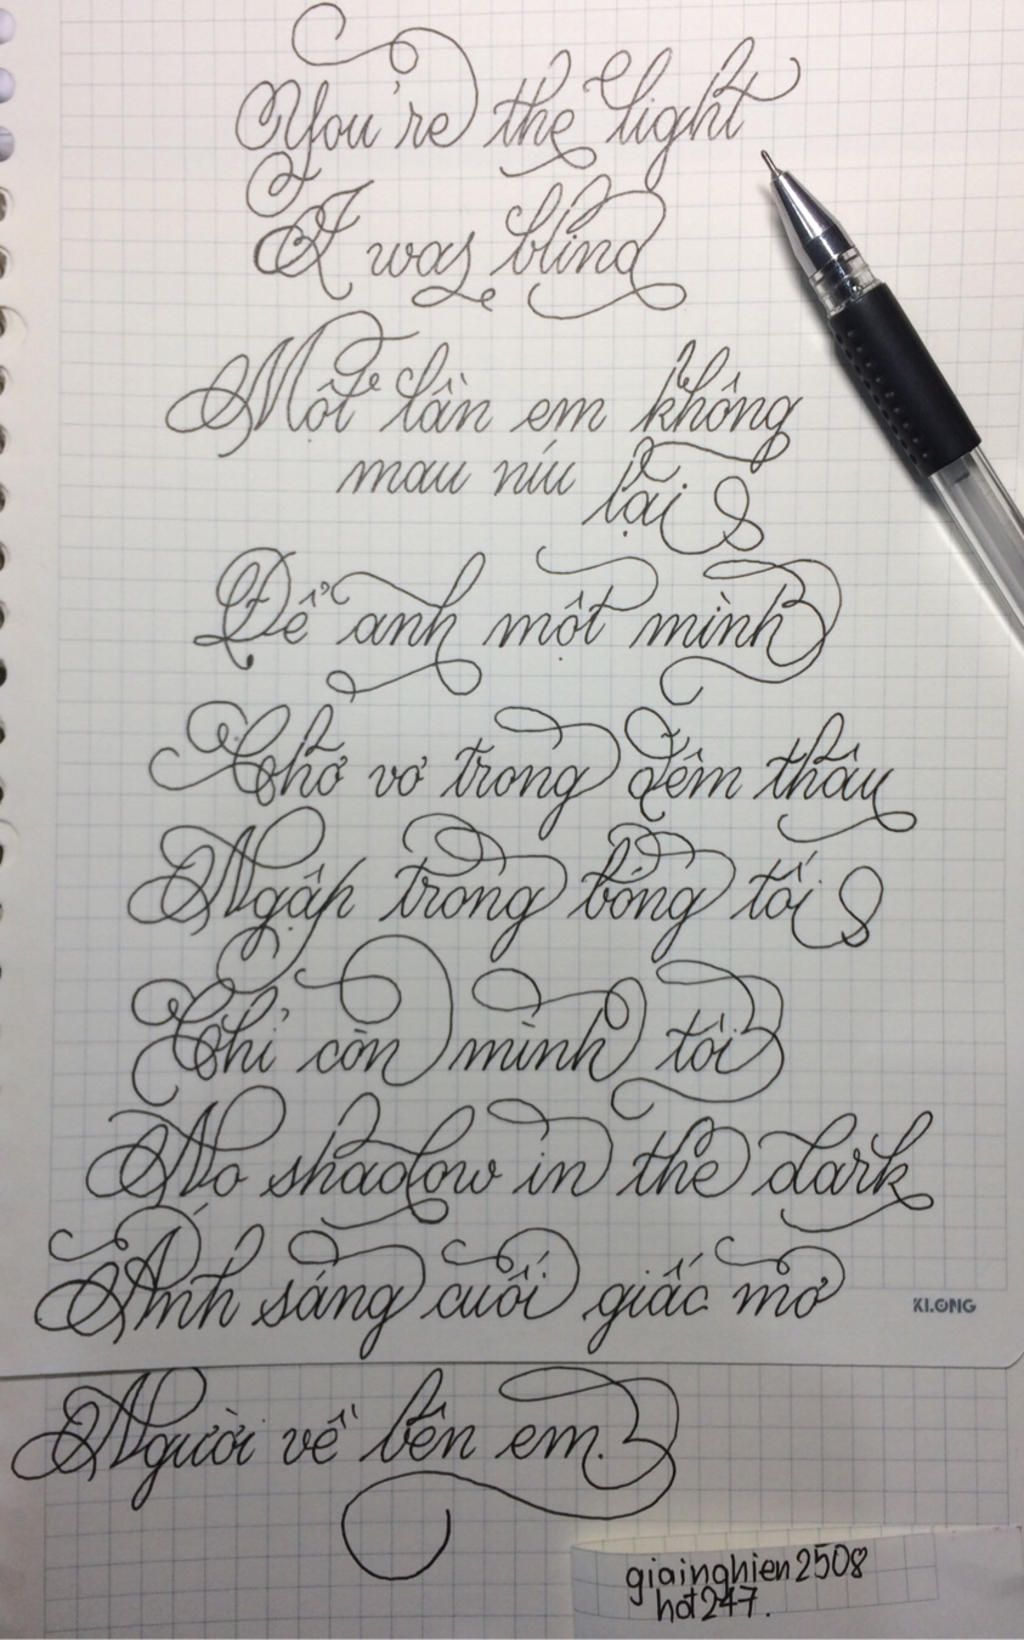 You're the light
I was blind
Một lần em không
mau níu lại
Để anh một mình
Chơ vơ trong đêm thâu
Ngập trong bóng tối
Chỉ còn mình tôi
No shadow in the dark
Ánh sáng cuối giấc mơ
KLONG
Người về bên em.
giainghien2508
hot247.